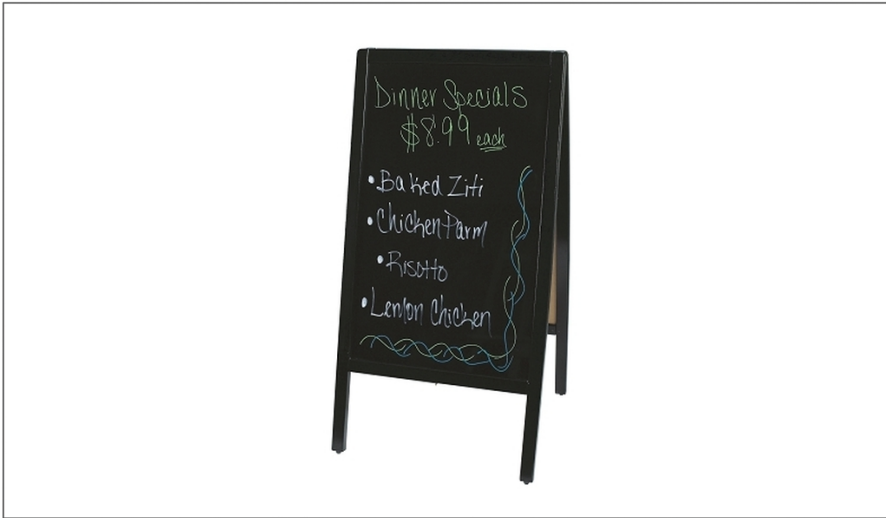 Dinner Specials
$8.99 each
• Baked Ziti
• Chicken Parm
• Risotto
• Lemon Chicken